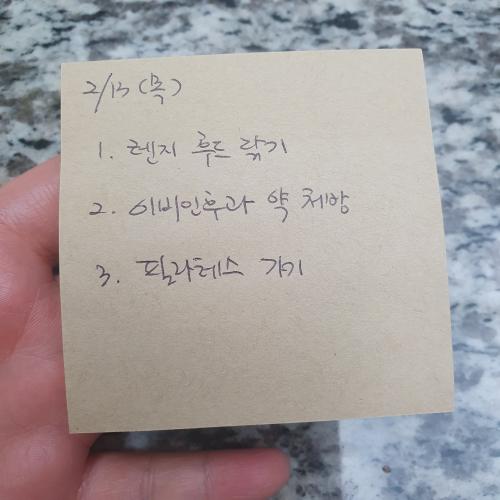 2/13 (목)
1. 렌지 후드 닦기
2. 이비인후과 약 처방
3. 필라테스 가기